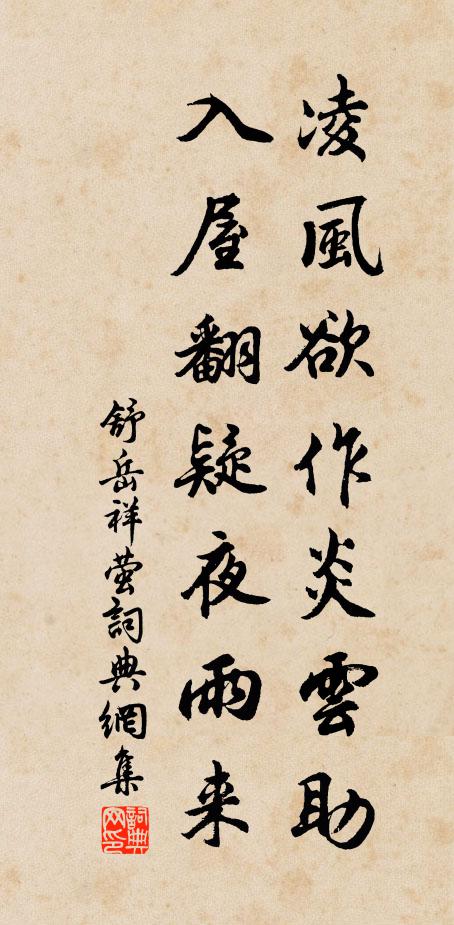 凌風欲作炎雲助
入屋翻疑夜雨来
舒岳祥萤詞典網集
詞典网印